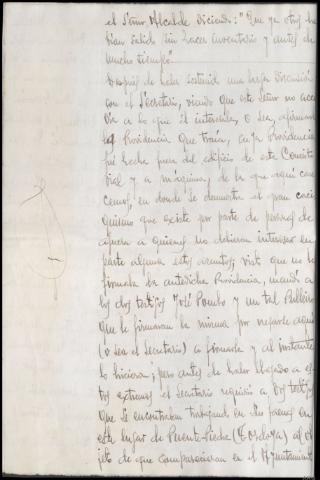 el Señor Alcalde diciendo: "Que ya otros ha-
bian salido sin hacer inventario y antes de
mucho tiempo".
Después de haber sostenido una larga discusión
con el Secretario, viendo que este Señor no acce
día a lo que él intentaba, o sea, a firmar
la Providencia que traía, cuya providencia
fué hecha fuera del edificio de este Consisto
rial y a máquina, de la que aquí care
cemos, en donde se demuestra el gran caci
quismo que existe por parte de personas de
aquella a quienes no debieran interesar en
parte alguna estos asuntos; visto que no le
firmaba la antedicha Providencia, mandó a
los dos testigos José Pombo y un tal
que le firmaran la misma por negarse aquí
(o sea el Secretario) a firmarla y al instante
lo hicieron; pero antes de haber llegado a es
tos extremos el Secretario requirió a los testigos
que se encontraban trabajando en sus faenas en
este lugar de Puente-Ledesma (Cerdedo) al ob
jeto de que comparecieran en el Ayuntamient